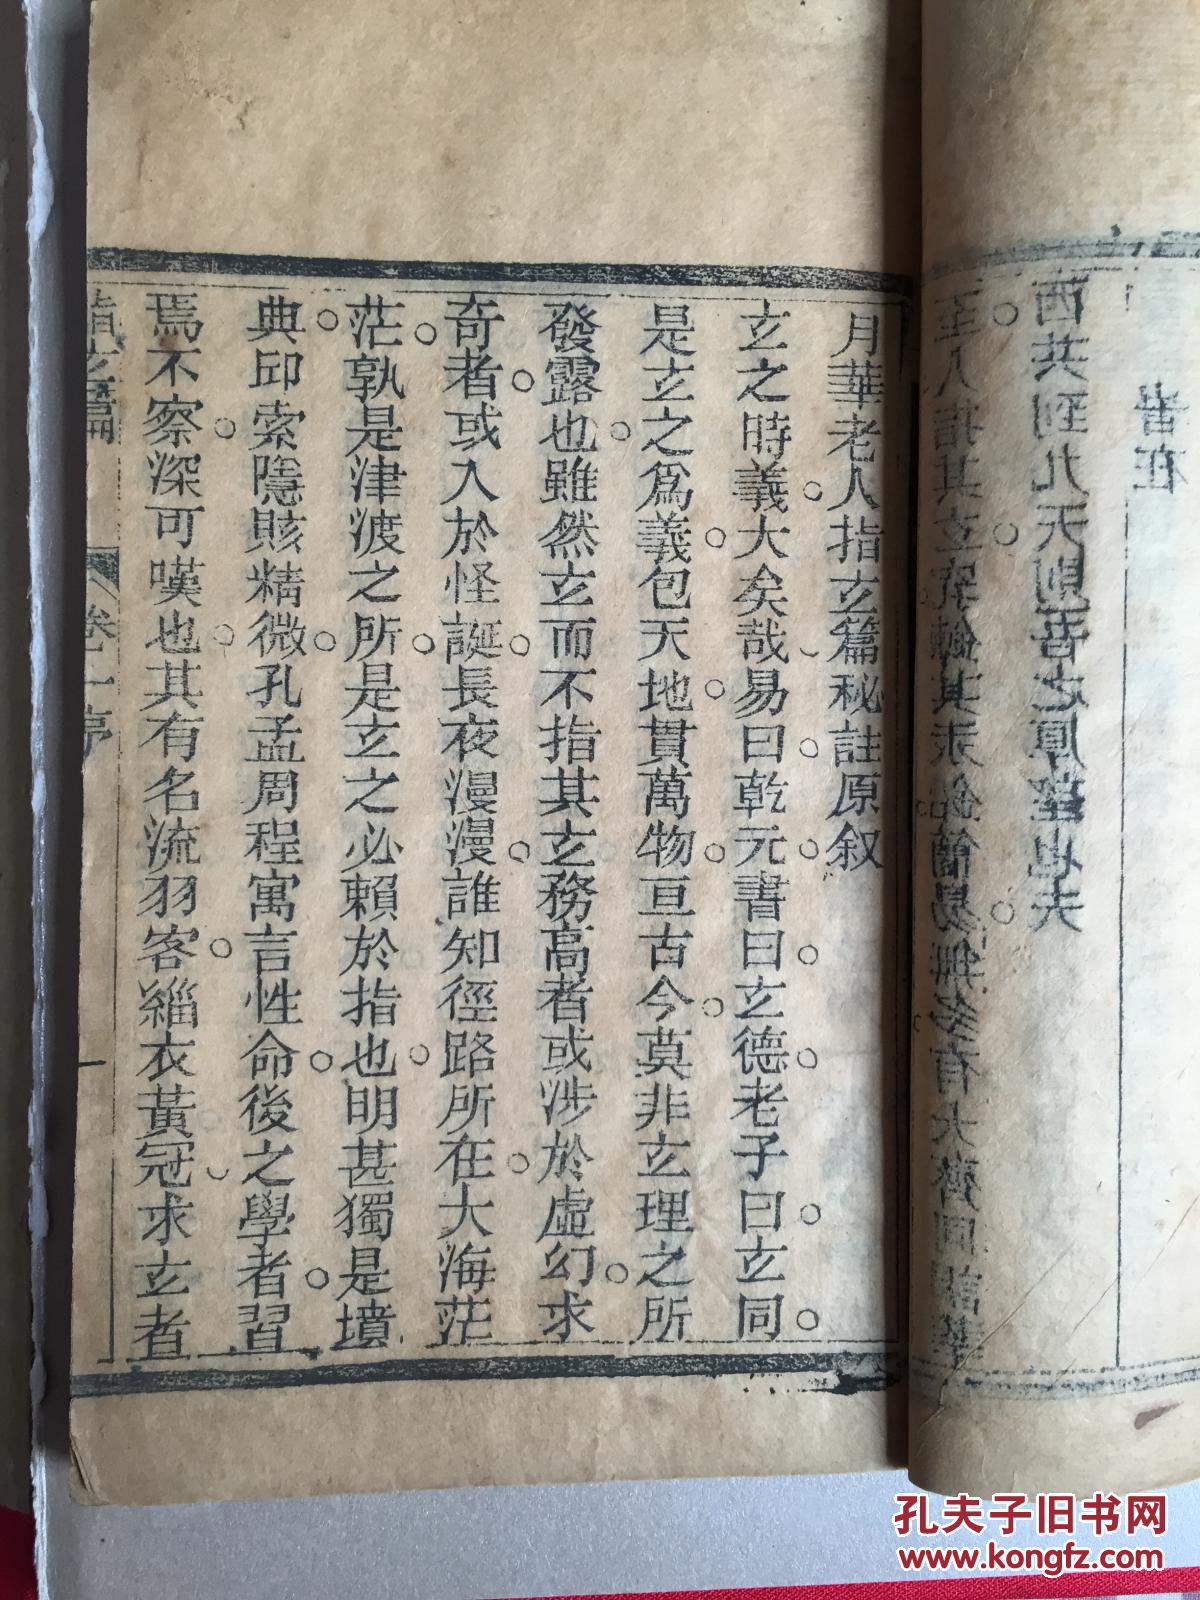 月華老人指玄篇秘註原叙
玄之時義大矣哉易曰乾元書曰玄德老子曰玄同
是玄之爲義包天地貫萬物亘古今莫非玄理之所
發露也雖然玄而不指其玄務高者或涉於虛幻求
奇者或入於怪誕長夜漫漫誰知徑路所在大海茫
茫孰是津渡之所是玄之必賴於指也明甚獨是墳
典邱索隱賅精微孔孟周程寓言性命後之學者習
焉不察深可嘆也其有名流羽客緇衣黃冠求玄者
指玄篇
卷一序
一
西共到九天則吾之原望也夫
孔夫子旧书网
www.kongfz.com